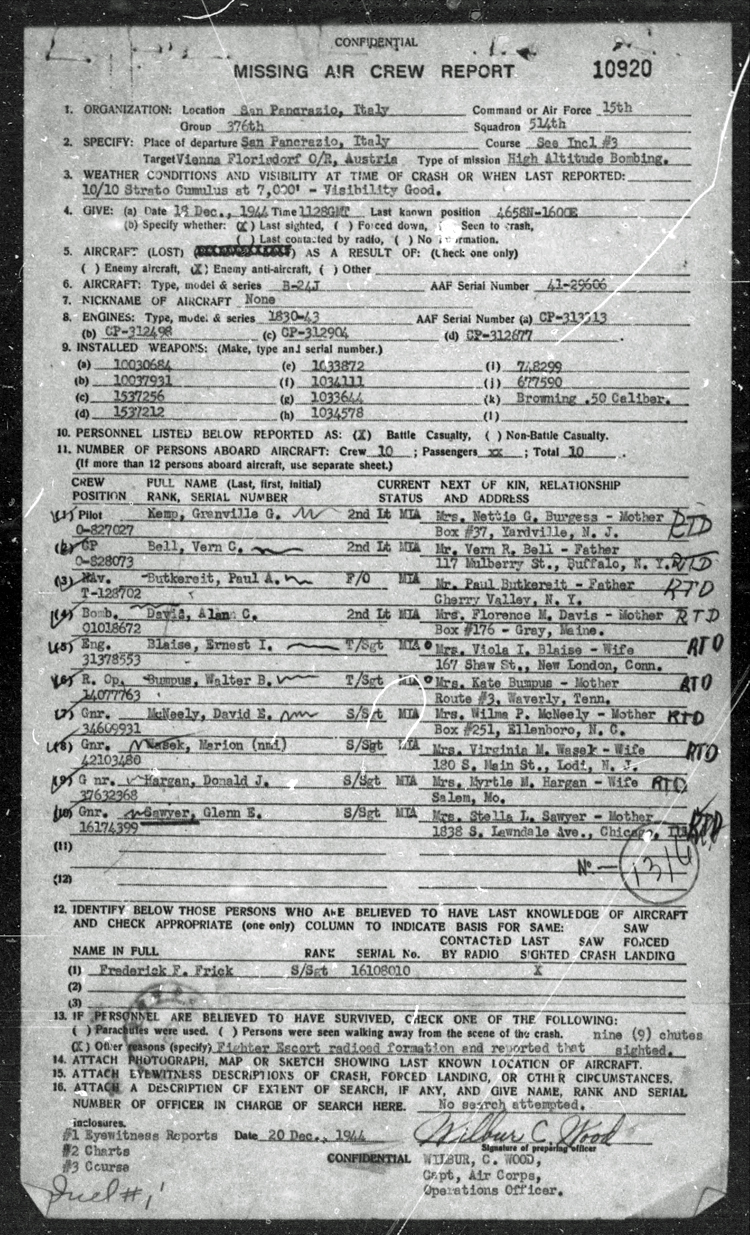 CONFIDENTIAL
MISSING AIR CREW REPORT 10920
1. ORGANIZATION: Location San Pancrazio, Italy Command or Air Force 15th
Group 376th Squadron 514th
2. SPECIFY: Place of departure San Pancrazio, Italy Course See Incl #3
Target Vienna Florisdorf O/R, Austria Type of mission High Altitude Bombing.
3. WEATHER CONDITIONS AND VISIBILITY AT TIME OF CRASH OR WHEN LAST REPORTED:
10/10 Strato Cumulus at 7,000' - Visibility Good.
4. GIVE: (a) Date Dec., 1944 Time 1128GMT Last known position 4658N-1600E
(b) Specify whether: (X) Last sighted, ( ) Forced down, ( ) Seen to crash,
( ) Last contacted by radio, ( ) No Information.
5. AIRCRAFT (LOST) ( ) AS A RESULT OF: (Check one only)
( ) Enemy aircraft, (X) Enemy anti-aircraft, ( ) Other
6. AIRCRAFT: Type, model & series B-24J AAF Serial Number 41-29606
7. NICKNAME OF AIRCRAFT None
8. ENGINES: Type, model & series 1830-43 AAF Serial Number (a) CP-313513
(b) CP-312498 (c) CP-312904 (d) CP-312877
9. INSTALLED WEAPONS: (Make, type and serial number.)
(a) 10030684 (e) 1633872 (i) 748299
(b) 10037931 (f) 1034111 (j) 677590
(c) 1537256 (g) 1033644 (k) Browning .50 Caliber.
(d) 1537212 (h) 1034578 (l)
10. PERSONNEL LISTED BELOW REPORTED AS: (X) Battle Casualty, ( ) Non-Battle Casualty.
11. NUMBER OF PERSONS ABOARD AIRCRAFT: Crew 10 ; Passengers xx ; Total 10 .
(If more than 12 persons aboard aircraft, use separate sheet.)
CREW FULL NAME (Last, first, initial) CURRENT NEXT OF KIN, RELATIONSHIP
POSITION RANK, SERIAL NUMBER STATUS AND ADDRESS
(1) Pilot Kemp, Granville G. 2nd Lt MIA Mrs. Nettie G. Burgess - Mother RTD
O-827027 Box #37, Yardville, N. J.
(2) CP Bell, Vern C. 2nd Lt MIA Mr. Vern R. Bell - Father
O-828073 117 Mulberry St., Buffalo, N. Y. RTD
(3) Nav. Butkereit, Paul A. F/O MIA Mr. Paul Butkereit - Father RTD
T-128702 Cherry Valley, N. Y.
(4) Bomb. Davis, Alan C. 2nd Lt MIA Mrs. Florence M. Davis - Mother RTD
O1018672 Box #176 - Gray, Maine.
(5) Eng. Blaise, Ernest I. T/Sgt MIA Mrs. Viola I. Blaise - Wife RTD
31378553 167 Shaw St., New London, Conn.
(6) R. Op. Bumpus, Walter B. T/Sgt MIA Mrs. Kate Bumpus - Mother RTD
14077763 Route #3, Waverly, Tenn.
(7) Gnr. McNeely, David E. S/Sgt MIA Mrs. Wilma P. McNeely - Mother RTD
34609931 Box #251, Ellenboro, N. C.
(8) Gnr. Wasek, Marion (nmi) S/Sgt MIA Mrs. Virginia M. Wasek - Wife RTD
42103480 180 S. Main St., Lodi, N. J.
(9) G nr. Hargan, Donald J. S/Sgt MIA Mrs. Myrtle M. Hargan - Wife RTD
37632368 Salem, Mo.
(10) Gnr. Sawyer, Glenn E. S/Sgt MIA Mrs. Stella L. Sawyer - Mother RTD
16174399 1838 S. Lawndale Ave., Chicago, Ill.
(11)
No — 1316
(12)
12. IDENTIFY BELOW THOSE PERSONS WHO ARE BELIEVED TO HAVE LAST KNOWLEDGE OF AIRCRAFT
AND CHECK APPROPRIATE (one only) COLUMN TO INDICATE BASIS FOR SAME: SAW
CONTACTED LAST SAW FORCED
NAME IN FULL RANK SERIAL No. BY RADIO SIGHTED CRASH LANDING
(1) Frederick F. Frick S/Sgt 16108010 X
(2)
(3)
13. IF PERSONNEL ARE BELIEVED TO HAVE SURVIVED, CHECK ONE OF THE FOLLOWING:
( ) Parachutes were used. ( ) Persons were seen walking away from the scene of the crash. nine (9) chutes
(X) Other reasons (specify) Fighter Escort radioed formation and reported that sighted.
14. ATTACH PHOTOGRAPH, MAP OR SKETCH SHOWING LAST KNOWN LOCATION OF AIRCRAFT.
15. ATTACH EYEWITNESS DESCRIPTIONS OF CRASH, FORCED LANDING, OR OTHER CIRCUMSTANCES.
16. ATTACH A DESCRIPTION OF EXTENT OF SEARCH, IF ANY, AND GIVE NAME, RANK AND SERIAL
NUMBER OF OFFICER IN CHARGE OF SEARCH HERE. No search attempted.
inclosures.
#1 Eyewitness Reports Date 20 Dec., 1944 Wilbur C. Wood
Signature of preparing officer
#2 Charts CONFIDENTIAL WILBUR, C. WOOD,
#3 Course Capt, Air Corps,
Operations Officer.
Incl #1